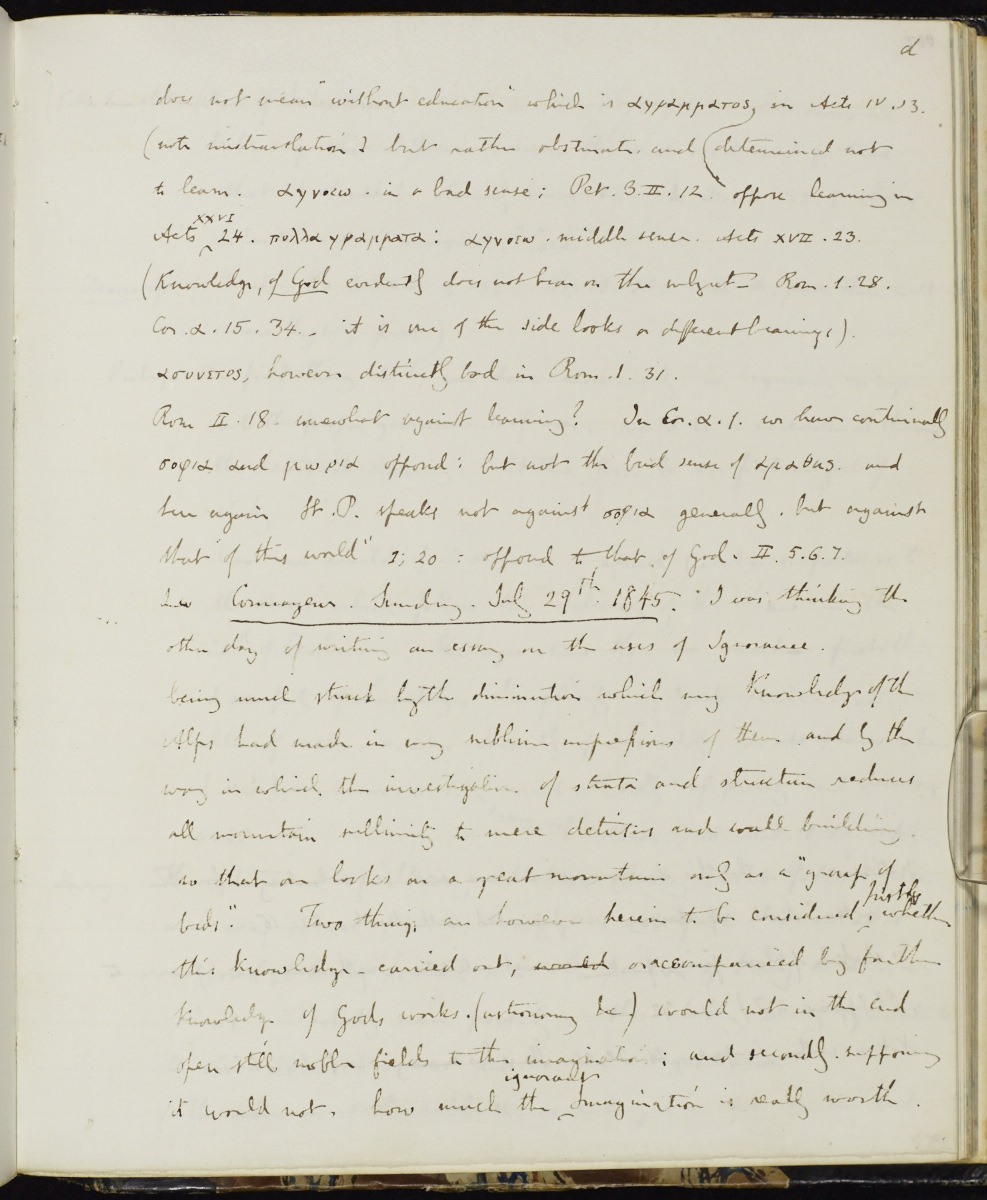 d
does not mean "without education" which is αγραμματος, in Acts IV.13.
(note mistranslation) but rather obstinate and (determined not
to learn. αγνοεω. in a bad sense; Pet. 3. II. 12. oppose learning in
Acts XXVI 24. πολλα γραμματα: αγνοεω. middle sense. Acts XVII. 23.
(Knowledge, of God evidently does not bear on the subject - Rom. 1. 28.
Cor. α. 15. 34. - it is one of the side looks or different bearings).
ασυνετος, however distinctly bad in Rom. 1. 31.
Rom II. 18. somewhat against learning? In Cor. α. 1. we have continually
σοφια and μωρια opposed: but not the bad sense of αμαθης. and
here again St. P. speaks not against σοφια generally. but against
that "of this world" 1; 20: opposed to that of God. II. 5.6.7.
Courmayeur. Sunday. July 29th. 1845. I was thinking the
other day of writing an essay on the uses of Ignorance.
being much struck by the diminution which my Knowledge of the
Alps had made in my sublime impressions of them and by the
way in which the investigation of strata and structure reduces
all mountain sublimity to mere detritus and wall building.
so that one looks on a great mountain only as a "group of
beds". Two things are however herein to be considered, firstly whether
this knowledge - carried out, would or accompanied by farther
Knowledge of Gods works. (astronomy &c) would not in the end
open still nobler fields to the imagination; and secondly. supposing
it would not, how much the ignorant Imagination is really worth.